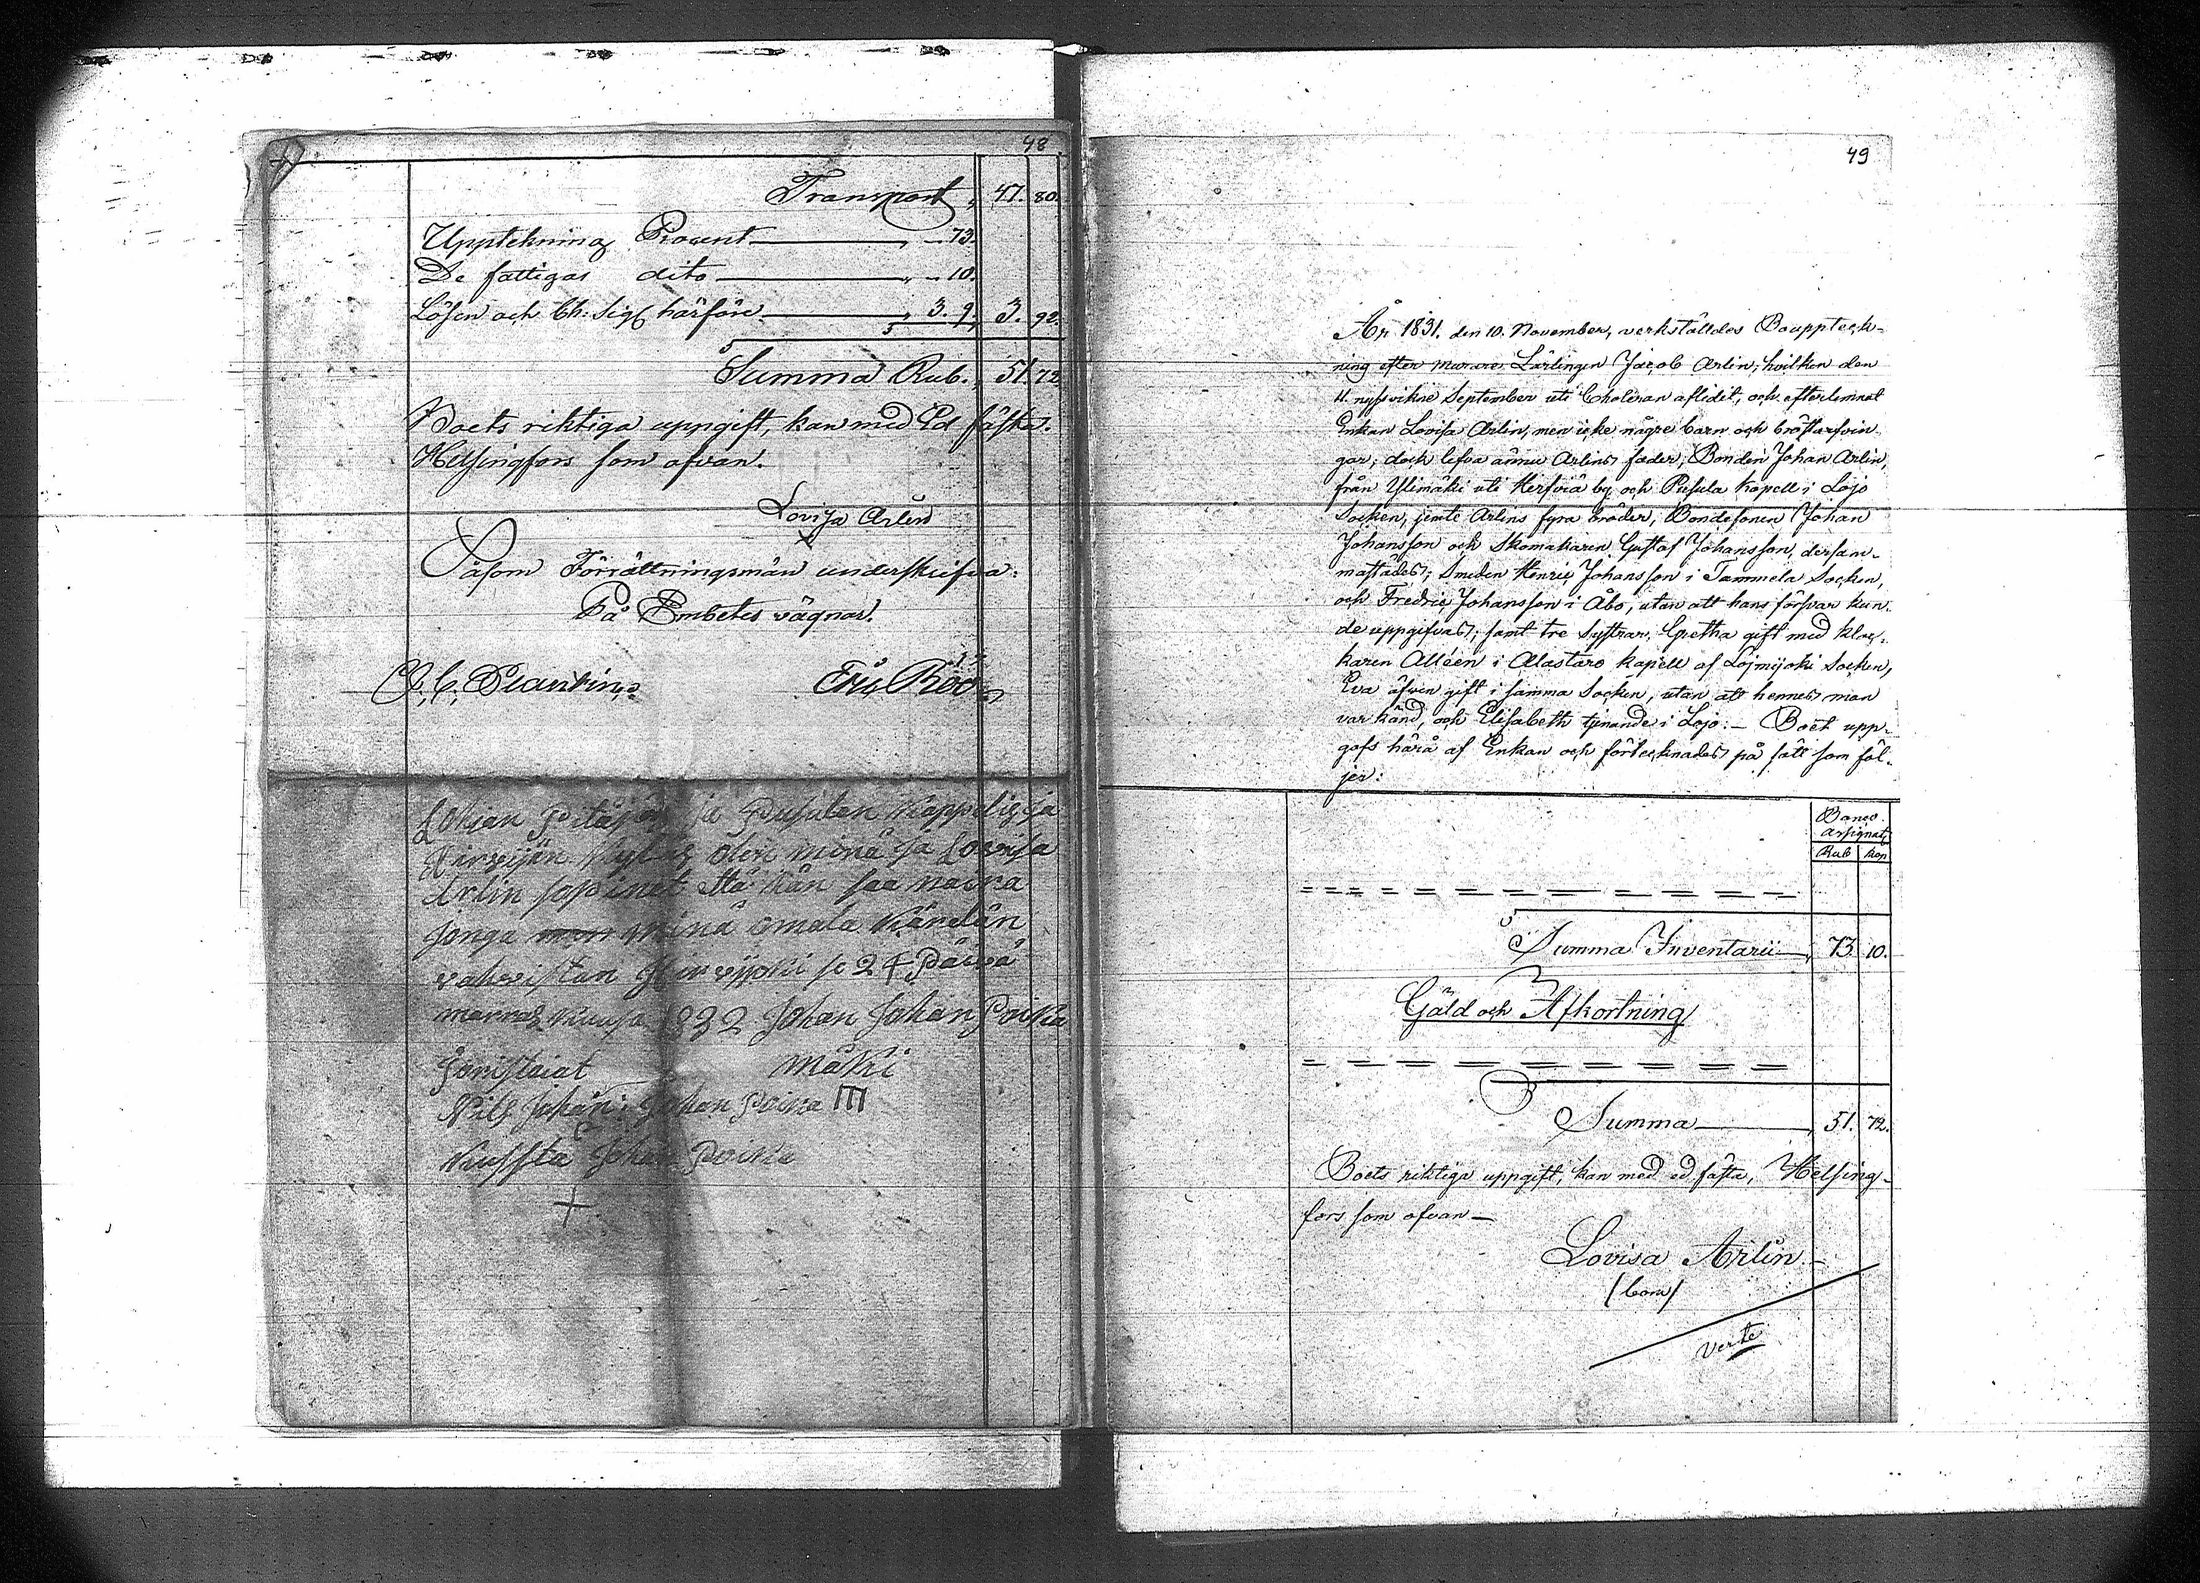 48
Transport 47. 80.
Upptekning Procent — „ – 73.
De fattigas dito — „ – 10.
Lösen och Ch: Sig härföre — „ 3. 9. 3. 92.
Summa Rub. 51. 72
Boets riktiga uppgift, kan med Ed fästa.
Helsingfors som ofvan.
Lovisa Arlin
Såsom Förrättningsmän underskrifva:
På Embetes vägnar.
C. C. Plantin Eric Röö
Lohjan Pitäjän ja Pusulan Kappelissa
Hirvijän Kyläs olen minä ja Lovisa
Arlin sopinet että hän saa naira
jonga minä omala Kärelän
vahvistan Hirvijoki se 24 Päivä
marras kuusa 1832 Johan Johan Poika
Toristaiat Mäki
Nils Johan Johan Poika III
Kussta Johan Poika
+
49
År 1831. den 10. November, verkställdes Bouppteck-
ning efter murare Lärlingen Jacob Arlin, hvilken den
11. nyssvikne September uti Choleran aflidit, och efterlemnat
Enkan Lovisa Arlin, men icke några barn och bröstarfvin-
gar; dock lefva ännu Arlins fader, Bonden Johan Arlin,
från Ylimäki uti Hirfviä by och Pusula Kapell i Lojo
Socken, jemte Arlins fyra bröder, Bondesonen Johan
Johansson och Skomakaren Gustaf Johansson, dersam-
mastädes; Smeden Henric Johansson i Tammela Socken,
och Fredric Johansson i Åbo, utan att hans försvar kun-
de uppgifvas; samt tre Systrar, Gretha gift med kloc-
karen Alléen i Alastaro kapell af Loimijoki Socken,
Eva äfven gift i samma Socken, utan att hennes man
var känd, och Elisabeth tjenande i Lojo. – Boet upp-
gafs härå af Enkan och förtecknades på sätt som föl-
jer:
Banco
Assignat:
Rub kop
Summa Inventarii — 73. 10.
Gäld och Afkortning
Summa — 51. 72.
Boets riktiga uppgift, kan med ed fästa, Helsing-
fors som ofvan —
Lovisa Arlin —
Verte